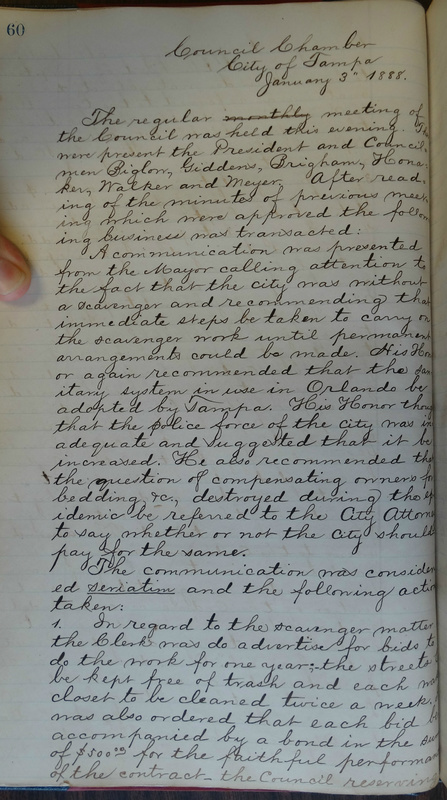 60
Council Chamber
City of Tampa
January 3" 1888.
The regular monthly meeting of
the Council was held this evening. The
were present the President and Council-
men Biglow, Giddens, Brigham, Hona-
ker, Walker and Meyer. After read-
ing of the minutes of previous meet-
ing which were approved the follow
ing business was transacted:
A communication was presented
from the Mayor calling attention to
the fact that the city was without
a scavenger and recommending that
immediate steps be taken to carry on
the scavenger work until permanent
arrangements could be made. His Hon
or again recommended that the san
itary system in use in Orlando be
adopted by Tampa. His Honor thou
that the police force of the city was in
adequate and suggested that it be
increased. He also recommended tha
the question of compensating owners for
bedding, &c, destroyed during the ep
idemic be referred to the City Attorne
to say whether or not the city should
pay for the same.
The communication was consider
ed seriatim and the following action
taken:
1. In regard to the scavenger matter
the Clerk was do advertise for bids to
do the work for one year;-the streets
be kept free of trash and each wa
closet to be cleaned twice a week.
was also ordered that each bid be
accompanied by a bond in the su
of $500.00 for the faithful performan
of the contract. the Council reserving